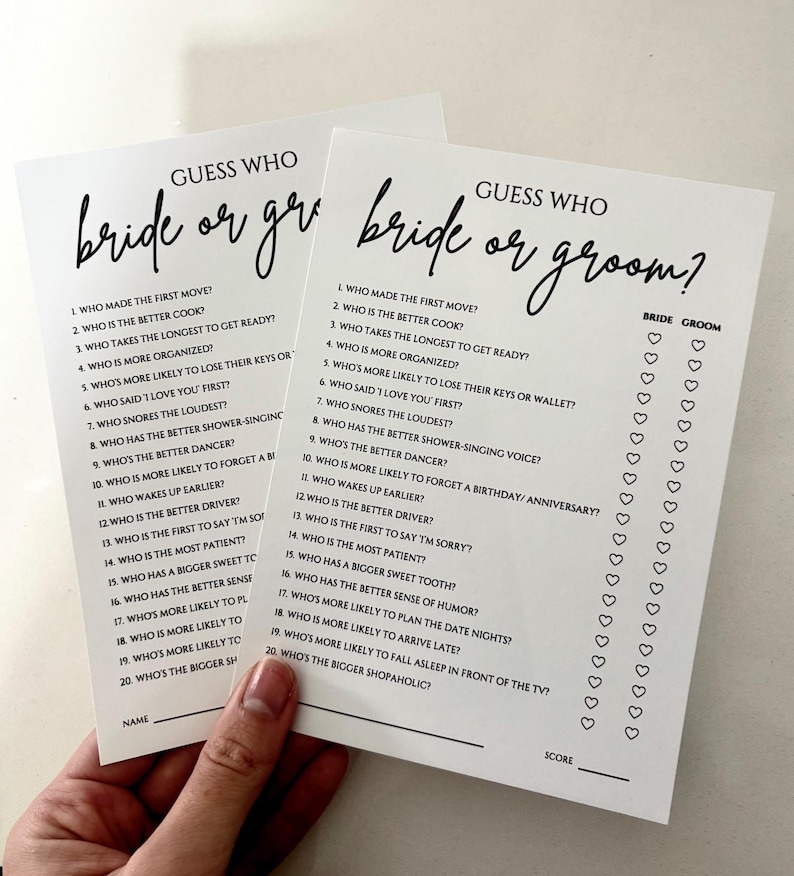 GUESS WHO
bride or gro
1. WHO MADE THE FIRST MOVE?
2. WHO IS THE BETTER COOK?
3. WHO TAKES THE LONGEST TO GET READY?
4. WHO IS MORE ORGANIZED?
5. WHO'S MORE LIKELY TO LOSE THEIR KEYS OR
6. WHO SAID 'I LOVE YOU' FIRST?
7. WHO SNORES THE LOUDEST?
8. WHO HAS THE BETTER SHOWER-SINGING
9. WHO'S THE BETTER DANCER?
10. WHO IS MORE LIKELY TO FORGET A
11. WHO WAKES UP EARLIER?
12.WHO IS THE BETTER DRIVER?
13. WHO IS THE FIRST TO SAY 'I'M
14. WHO IS THE MOST PATIENT?
15. WHO HAS A BIGGER SWEET
16. WHO HAS THE BETTER SENSE
17. WHO'S MORE LIKELY TO
18. WHO IS MORE LIKELY TO
19. WHO'S MORE LIKELY TO
20. WHO'S THE BIGGER
NAME
GUESS WHO
bride or groom?
BRIDE GROOM
1. WHO MADE THE FIRST MOVE?
2. WHO IS THE BETTER COOK?
3. WHO TAKES THE LONGEST TO GET READY?
4. WHO IS MORE ORGANIZED?
5. WHO'S MORE LIKELY TO LOSE THEIR KEYS OR WALLET?
6. WHO SAID 'I LOVE YOU' FIRST?
7. WHO SNORES THE LOUDEST?
8. WHO HAS THE BETTER SHOWER-SINGING VOICE?
9. WHO'S THE BETTER DANCER?
10. WHO IS MORE LIKELY TO FORGET A BIRTHDAY/ ANNIVERSARY?
11. WHO WAKES UP EARLIER?
12.WHO IS THE BETTER DRIVER?
13. WHO IS THE FIRST TO SAY 'I'M SORRY?
14. WHO IS THE MOST PATIENT?
15. WHO HAS A BIGGER SWEET TOOTH?
16. WHO HAS THE BETTER SENSE OF HUMOR?
17. WHO'S MORE LIKELY TO PLAN THE DATE NIGHTS?
18. WHO IS MORE LIKELY TO ARRIVE LATE?
19. WHO'S MORE LIKELY TO FALL ASLEEP IN FRONT OF THE TV?
20. WHO'S THE BIGGER SHOPAHOLIC?
SCORE